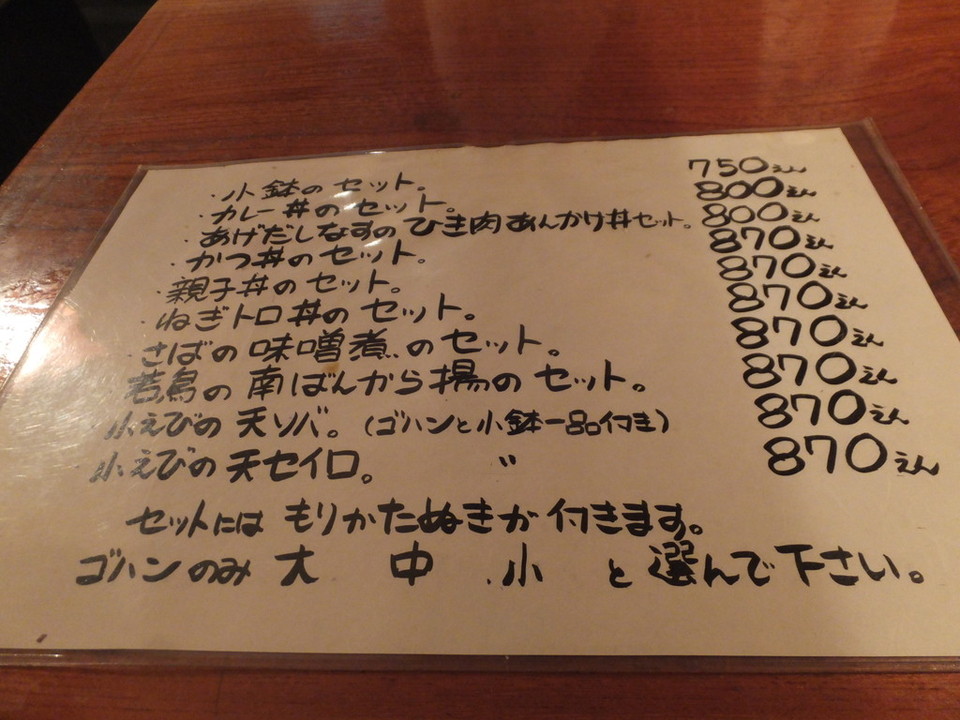 ・小鉢のセット。 750えん
・カレー丼のセット。 800えん
・あげだしなすのひき肉あんかけ丼セット。 800えん
・かつ丼のセット。 870えん
・親子丼のセット。 870えん
・ねぎトロ丼のセット。 870えん
・さばの味噌煮のセット。 870えん
・若鳥の南ばんから揚のセット。 870えん
・小えびの天ソバ。(ゴハンと小鉢一品付き) 870えん
・小えびの天セイロ。 〃 870えん
セットにはもりかたぬきが付きます。
ゴハンのみ 大 中 小 と選んで下さい。